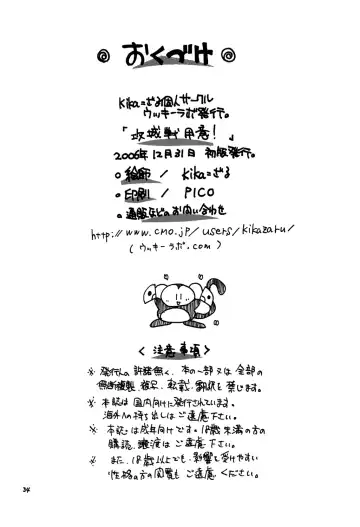 おくづけ
kikaざる個人サークル
ウッキーラボ発行。
「攻城戦用意!」
2006年12月31日 初版発行。
絵師 / kikaざる
印刷 / PICO
通販などのお問い合わせ
http://www.cmo.jp/users/kikazaru/
(ウッキーラボ.com)
<注意事項>
※ 発行人の許諾無く、本の一部又は全部の
無断複製、複写、転載、翻訳を禁じます。
※ 本誌は国内向けに発行されています。
海外への持ち出しはご遠慮下さい。
※ 本誌は成年向けです。18歳未満の方の
購読、譲渡はご遠慮下さい。
※ また、18歳以上でも、影響を受けやすい
性格の方の閲覧もご遠慮ください。
34